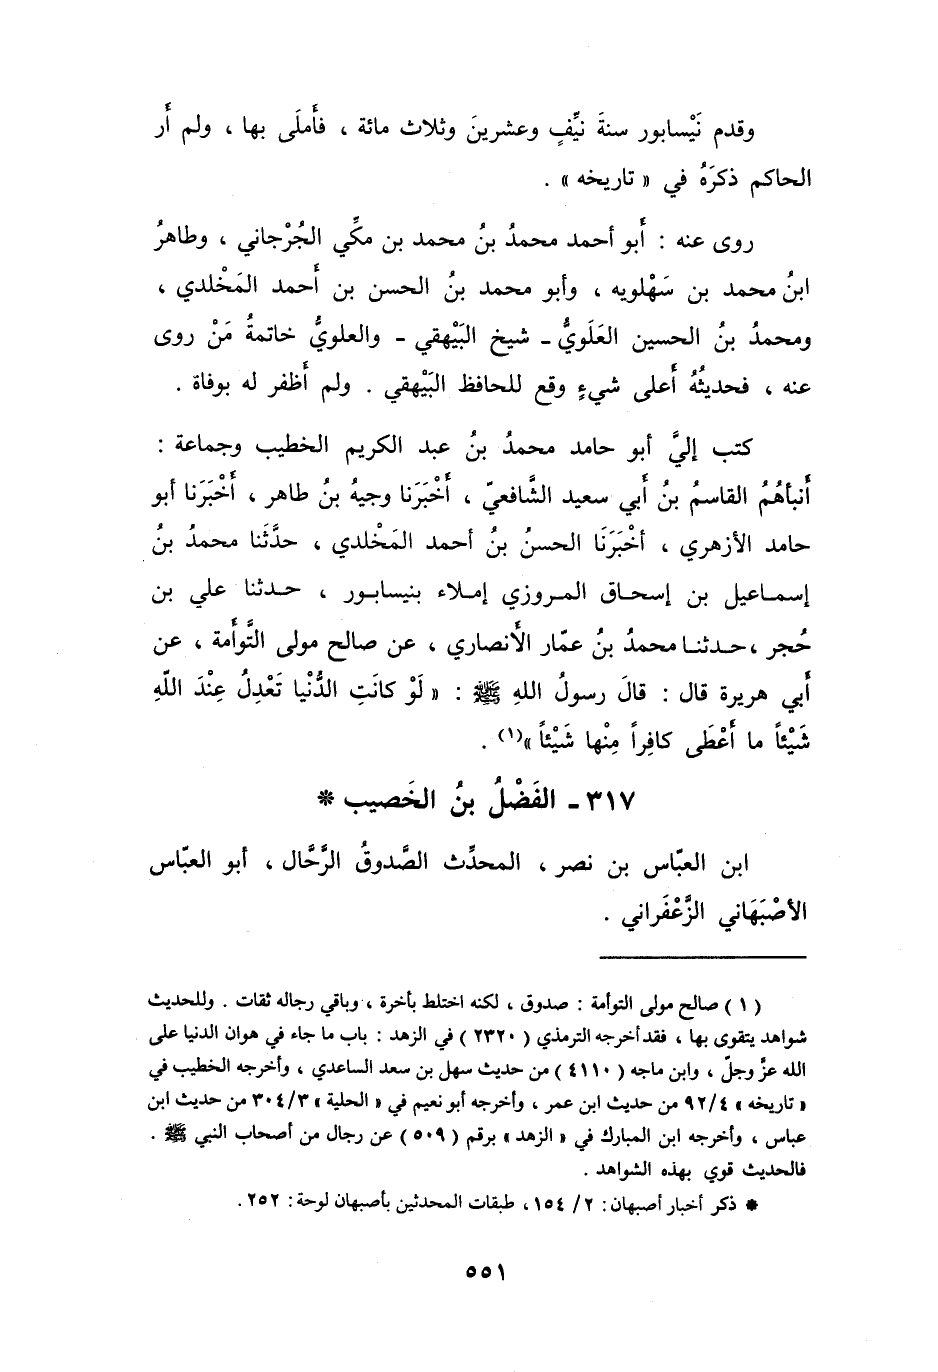 وقدم نَيْسابور سنةَ نيِّفٍ وعشرينَ وثلاث مائة ، فأَملَى بها ، ولم أَر
الحاكم ذكرَهُ في « تاريخه » .
روى عنه : أَبو أحمد محمدُ بنُ محمد بن مكِّي الجُرْجاني ، وطاهرُ
ابنُ محمد بن سَهْلويه ، وأبو محمد بنُ الحسن بن أَحمد المَخْلدي ،
ومحمدُ بنُ الحسين العَلَويُّ - شيخ البَيْهقي - والعلويُّ خاتمةُ مَنْ روى
عنه ، فحديثُهُ أَعلى شيءٍ وقع للحافظ البَيْهقي . ولم أَظفر له بوفاة .
كتب إليَّ أبو حامد محمدُ بنُ عبد الكريم الخطيب وجماعة :
أَنبأهُمُ القاسمُ بنُ أَبي سعيد الشَّافعيّ ، أَخْبَرَنا وجيهُ بنُ طاهر ، أَخْبَرَنا أبو
حامد الأزهري ، أخْبَرَنَا الحسنُ بنُ أحمد المَخْلدي ، حدَّثَنا محمدُ بنُ
إسماعيل بن إسحاق المروزي إملاء بنيسابور ، حدثنا علي بن
حُجر ، حدثنا محمدُ بنُ عمّار الأَنصاري ، عن صالح مولى التَّوأَمة ، عن
أَبي هريرة قال : قالَ رسولُ اللهِ ﷺ : « لَوْ كانَتِ الدُّنْيا تَعْدِلُ عِنْدَ اللَّهِ
شَيْئاً ما أَعْطَى كافِراً مِنْها شَيْئاً »(١) .
٣١٧ - الفَضْلُ بنُ الخَصيب *
ابن العبّاس بن نصر ، المحدِّث الصَّدوقُ الرَّحَّال ، أبو العبّاس
الأصْبَهَاني الزَّعْفَراني .
( ١ ) صالح مولى التوأمة : صدوق ، لكنه اختلط بأخرة ، وباقي رجاله ثقات . وللحديث
شواهد يتقوى بها ، فقد أخرجه الترمذي ( ٢٣٢٠ ) في الزهد : باب ما جاء في هوان الدنيا على
الله عزَّ وجلّ ، وابن ماجه ( ٤١١٠ ) من حديث سهل بن سعد الساعدي ، وأخرجه الخطيب في
« تاريخه » ٩٢/٤ من حديث ابن عمر ، وأخرجه أبو نعيم في « الحلية » ٣٠٤/٣ من حديث ابن
عباس ، وأخرجه ابن المبارك في « الزهد » برقم ( ٥٠٩ ) عن رجال من أصحاب النبي ﷺ .
فالحديث قوي بهذه الشواهد .
* ذكر أخبار أصبهان : ٢ / ١٥٤ ، طبقات المحدثين بأصبهان لوحة : ٢٥٢ .
٥٥١